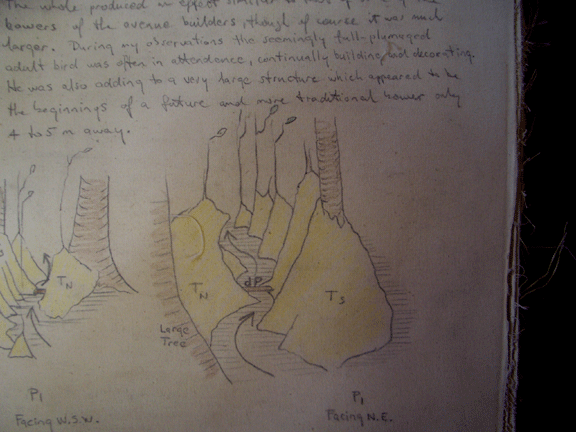 The whole produced an effect similar to
bowers of the avenue builders, though of course it was much
larger. During my observations the seemingly full-plumaged
adult bird was often in attendance, continually building and decorating.
He was also adding to a very large structure which appeared to be
the beginnings of a future and more traditional bower only
4 to 5 m away.
TN
TN
dP
TS
Large
Tree
P1
Facing W.S.W.
P1
Facing N.E.